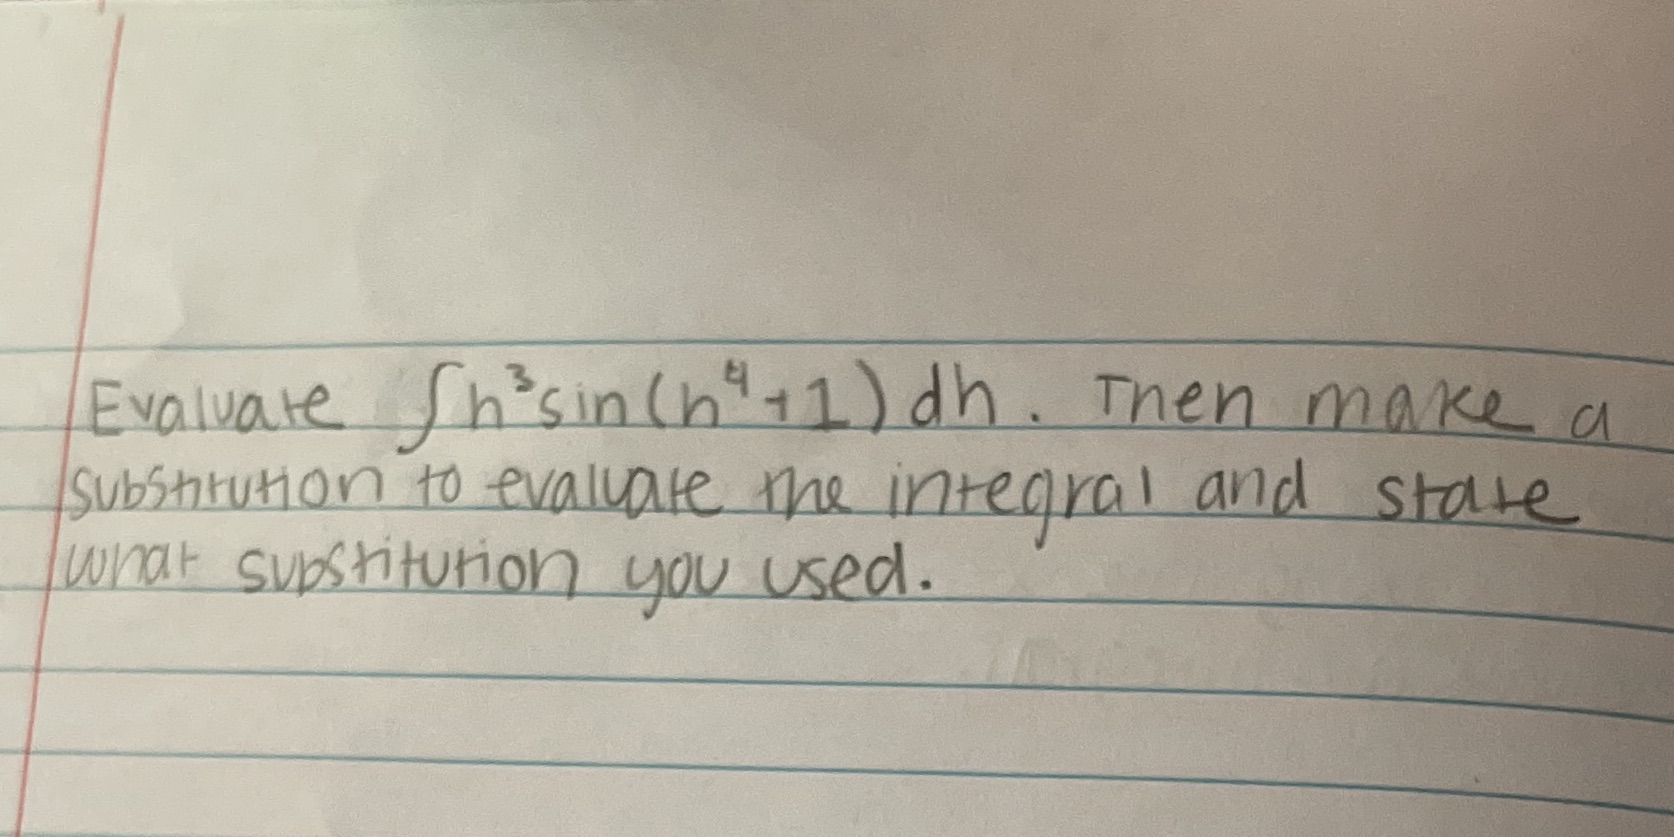 Evaluate ∫h³sin(h⁴+1)dh. Then make a
substitution to evaluate the integral and state
what substitution you used.